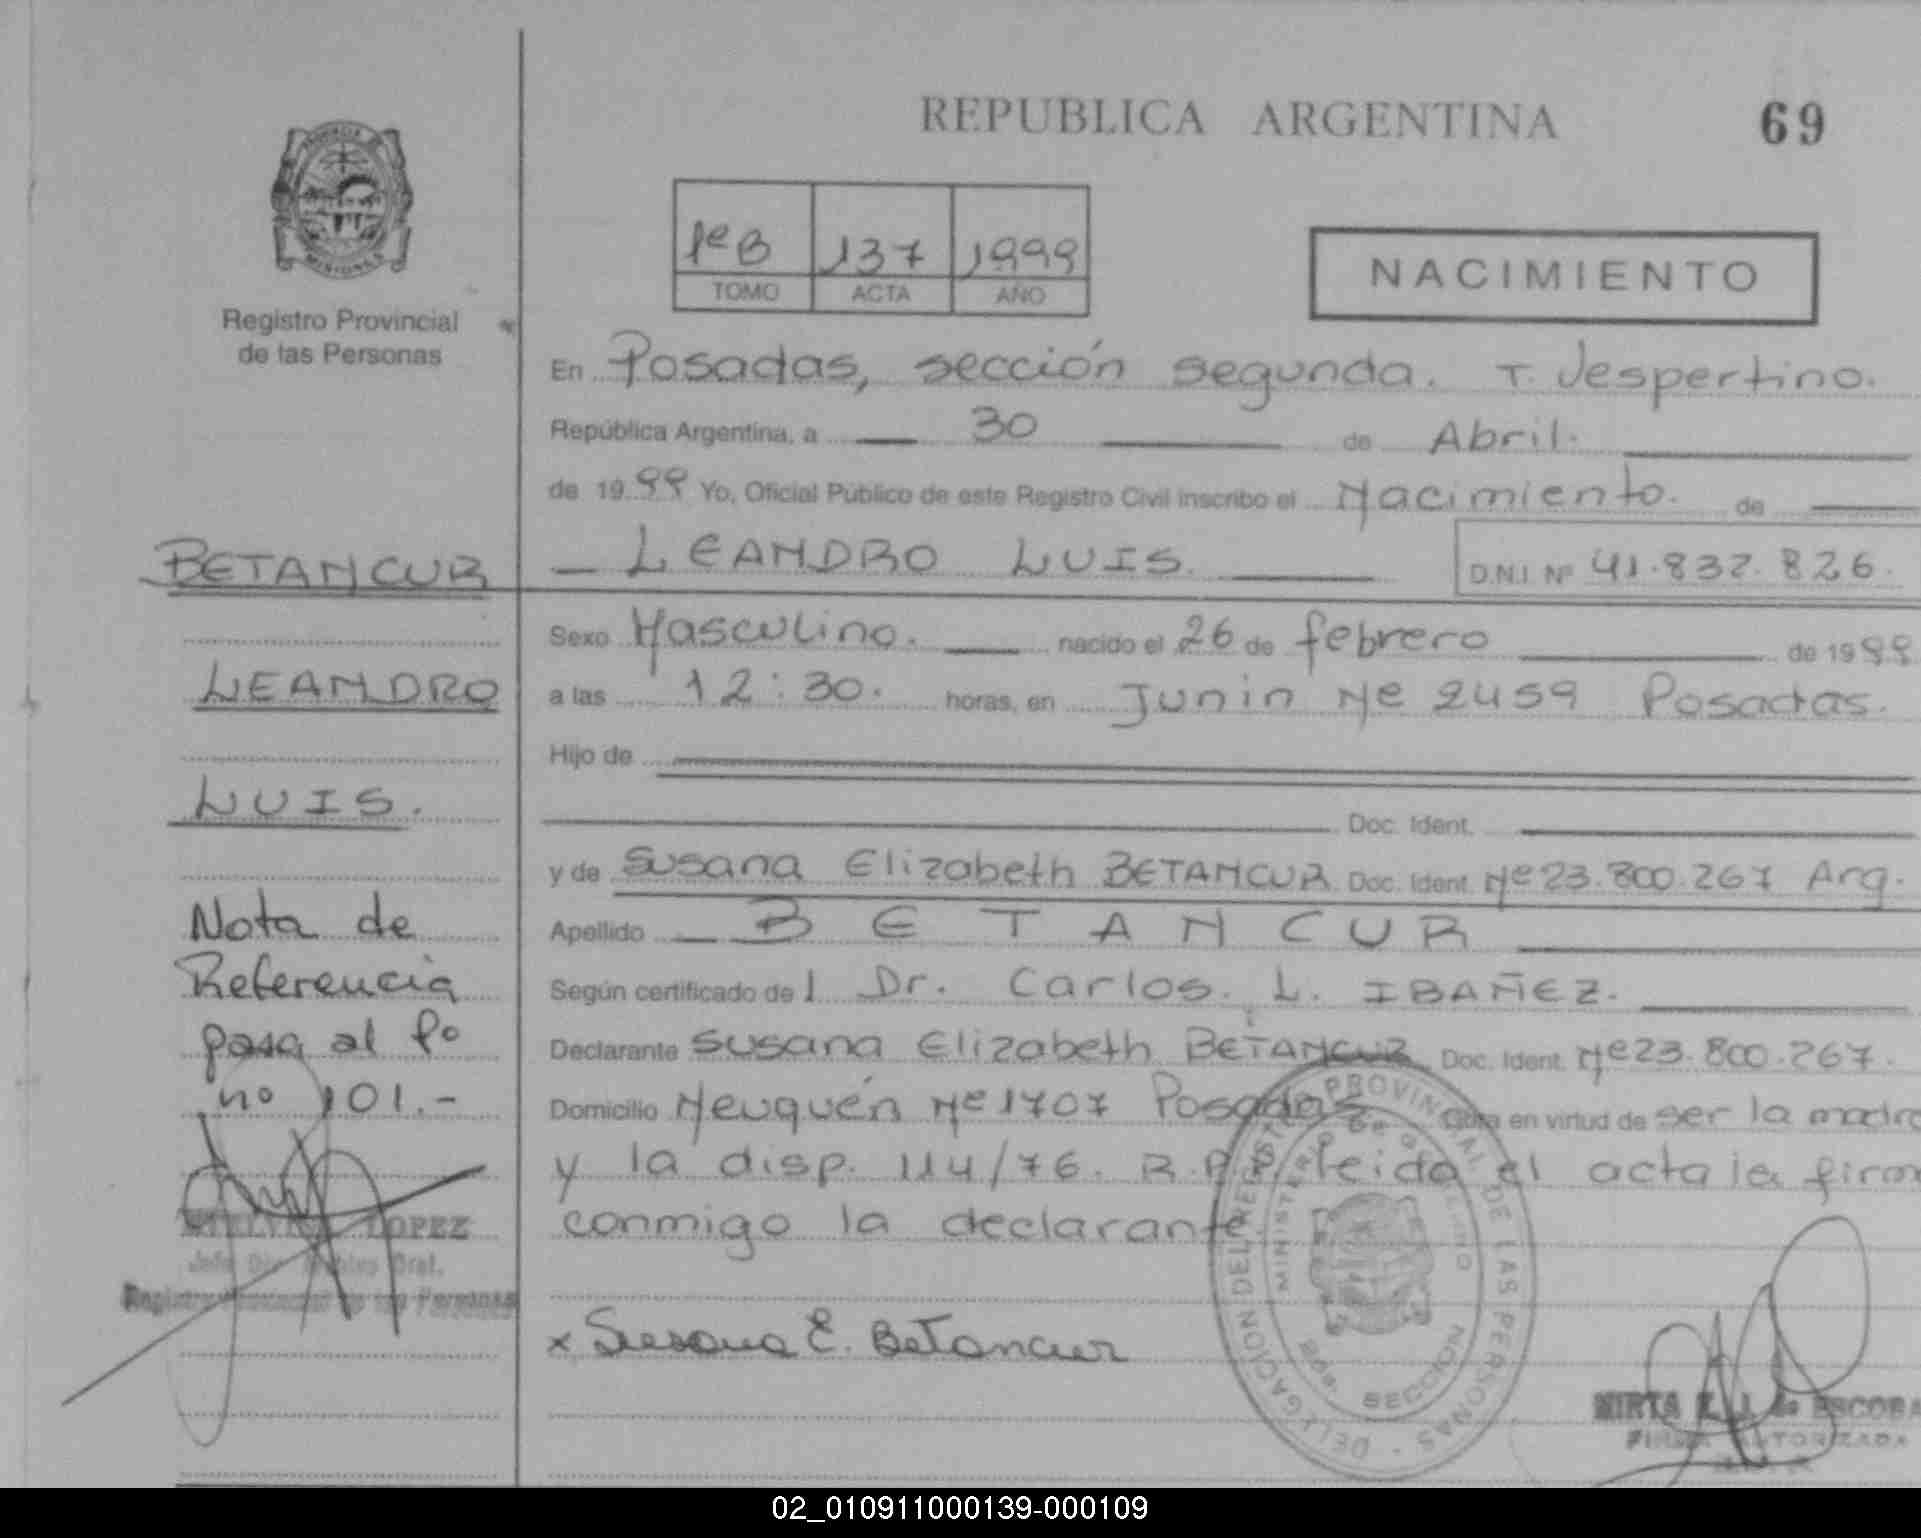 REPUBLICA ARGENTINA
69
PROVINCIA DE
MISIONES
Registro Provincial
de las Personas
1º B 137 1999
TOMO ACTA AÑO
NACIMIENTO
En Posadas, sección segunda. T. Vespertino.
República Argentina, a 30 de Abril.
de 1999 Yo, Oficial Público de este Registro Civil inscribo el Nacimiento. de
LEANDRO LUIS. D.N.I. Nº 41.832.826.
Sexo Masculino. nacido el 26 de febrero de 1999
a las 12:30. horas, en Junin Nº 2459 Posadas.
Hijo de
Doc. Ident.
y de Susana Elizabeth BETANCUR Doc. Ident. Nº 23.800.267 Arg.
Apellido BETANCUR
Según certificado de l Dr. Carlos. L. IBAÑEZ.
Declarante Susana Elizabeth BETANCUR Doc. Ident. Nº 23.800.267.
Domicilio Neuquén Nº 1707 Posadas. Obra en virtud de ser la madre
y la disp. 114/76. R.P.P. leida el acta la firm
conmigo la declarante.
x Susana E. Betancur
BETANCUR
LEANDRO
LUIS.
Nota de
Referencia
pasa al fº
nº 101.-
LOPEZ
Registro Provincial de las Personas
DELEGACION DEL REGISTRO PROVINCIAL DE LAS PERSONAS
MINISTERIO DE GOBIERNO
2da. SECCION
MIRTA E. J. de ESCOBA
FIRMA AUTORIZADA
02_010911000139-000109